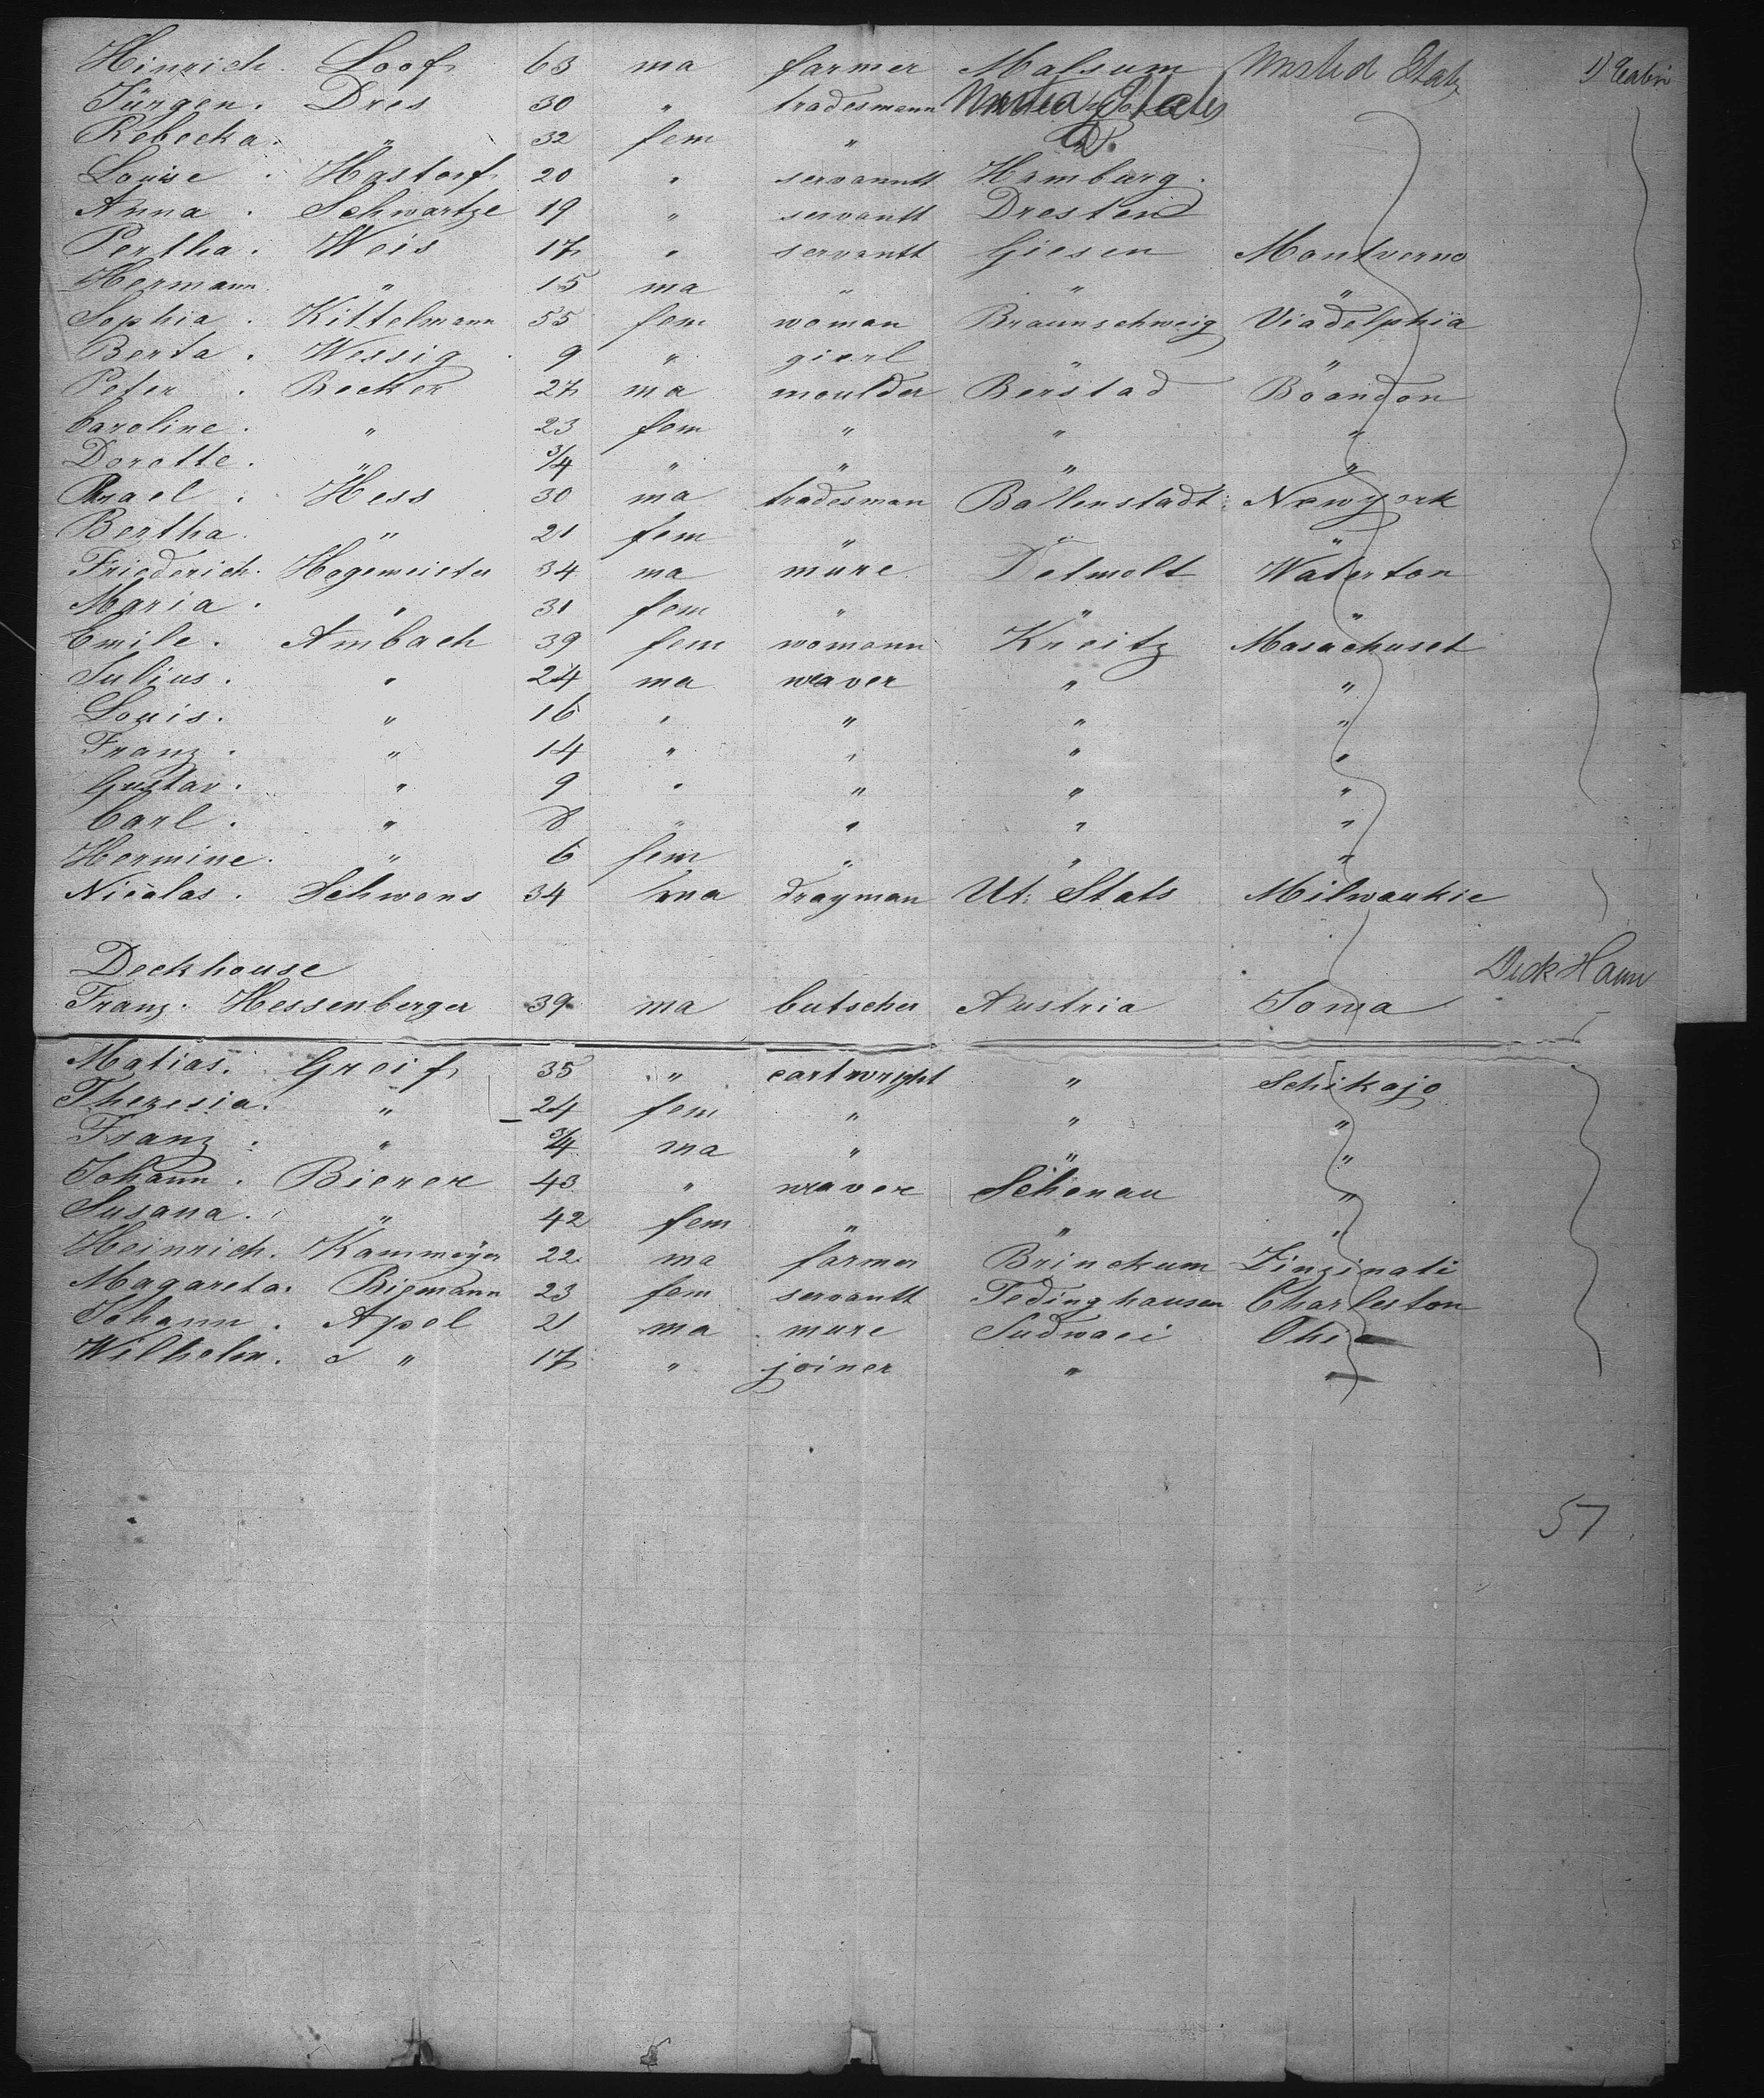 Hinrich. Loof 63 ma farmer Malsum United Stats 1) Cabin
Jürgen. Dres 30 " tradesmann United States
Rebecka. " 32 fem " Do.
Louise. Hastorf 20 " servanntt Hamburg.
Anna. Schwartze 19 " servantt Dresten
Pertha. Weis 17 " servantt Giesen Montverno
Hermann " 15 ma " " "
Sophia. Kittelmann 55 fem woman Braunschweig Viadelphia
Berta. Wessig 9 " gierl " "
Peter. Becker 27 ma moulder Berstad Boandon
Caroline. " 23 fem " " "
Dorotte. " 3/4 " " " "
Hess 30 ma tradesman Ballenstadt Newyork
Bertha. " 21 fem " " "
Friederich. Hagemeister 34 ma mure Detmolt Waterton
Maria. " 31 fem " " "
Emile. Ambach 39 fem womann Kreitz Masachuset
Julius. " 24 ma weaver " "
Louis. " 16 " " " "
Franz. " 14 " " " "
Gustav. " 9 " " " "
Carl. " 8 " " " "
Hermine. " 6 fem " " "
Nicolas. Schwons 34 ma drayman Ut. Stats Milwaukie
Deckhouse Deck Haus
Franz. Hessenberger 39 ma butscher Austria Jowa
Matias. Greif 35 " cartwright " Schikajo
Theresia. " 24 fem " " "
Franz. " 3/4 ma " " "
Johann. Bierer 43 " weaver Schonau "
Susana. " 42 fem " " "
Heinrich. Kammeyer 22 ma farmer Brinckum Zinzinati
Magareta. Bigmann 23 fem servantt Tedinghausen Charleston
Johann. Apel 21 ma mure Sudwaei Ohio
Wilhelm. " 17 " joiner " "
57